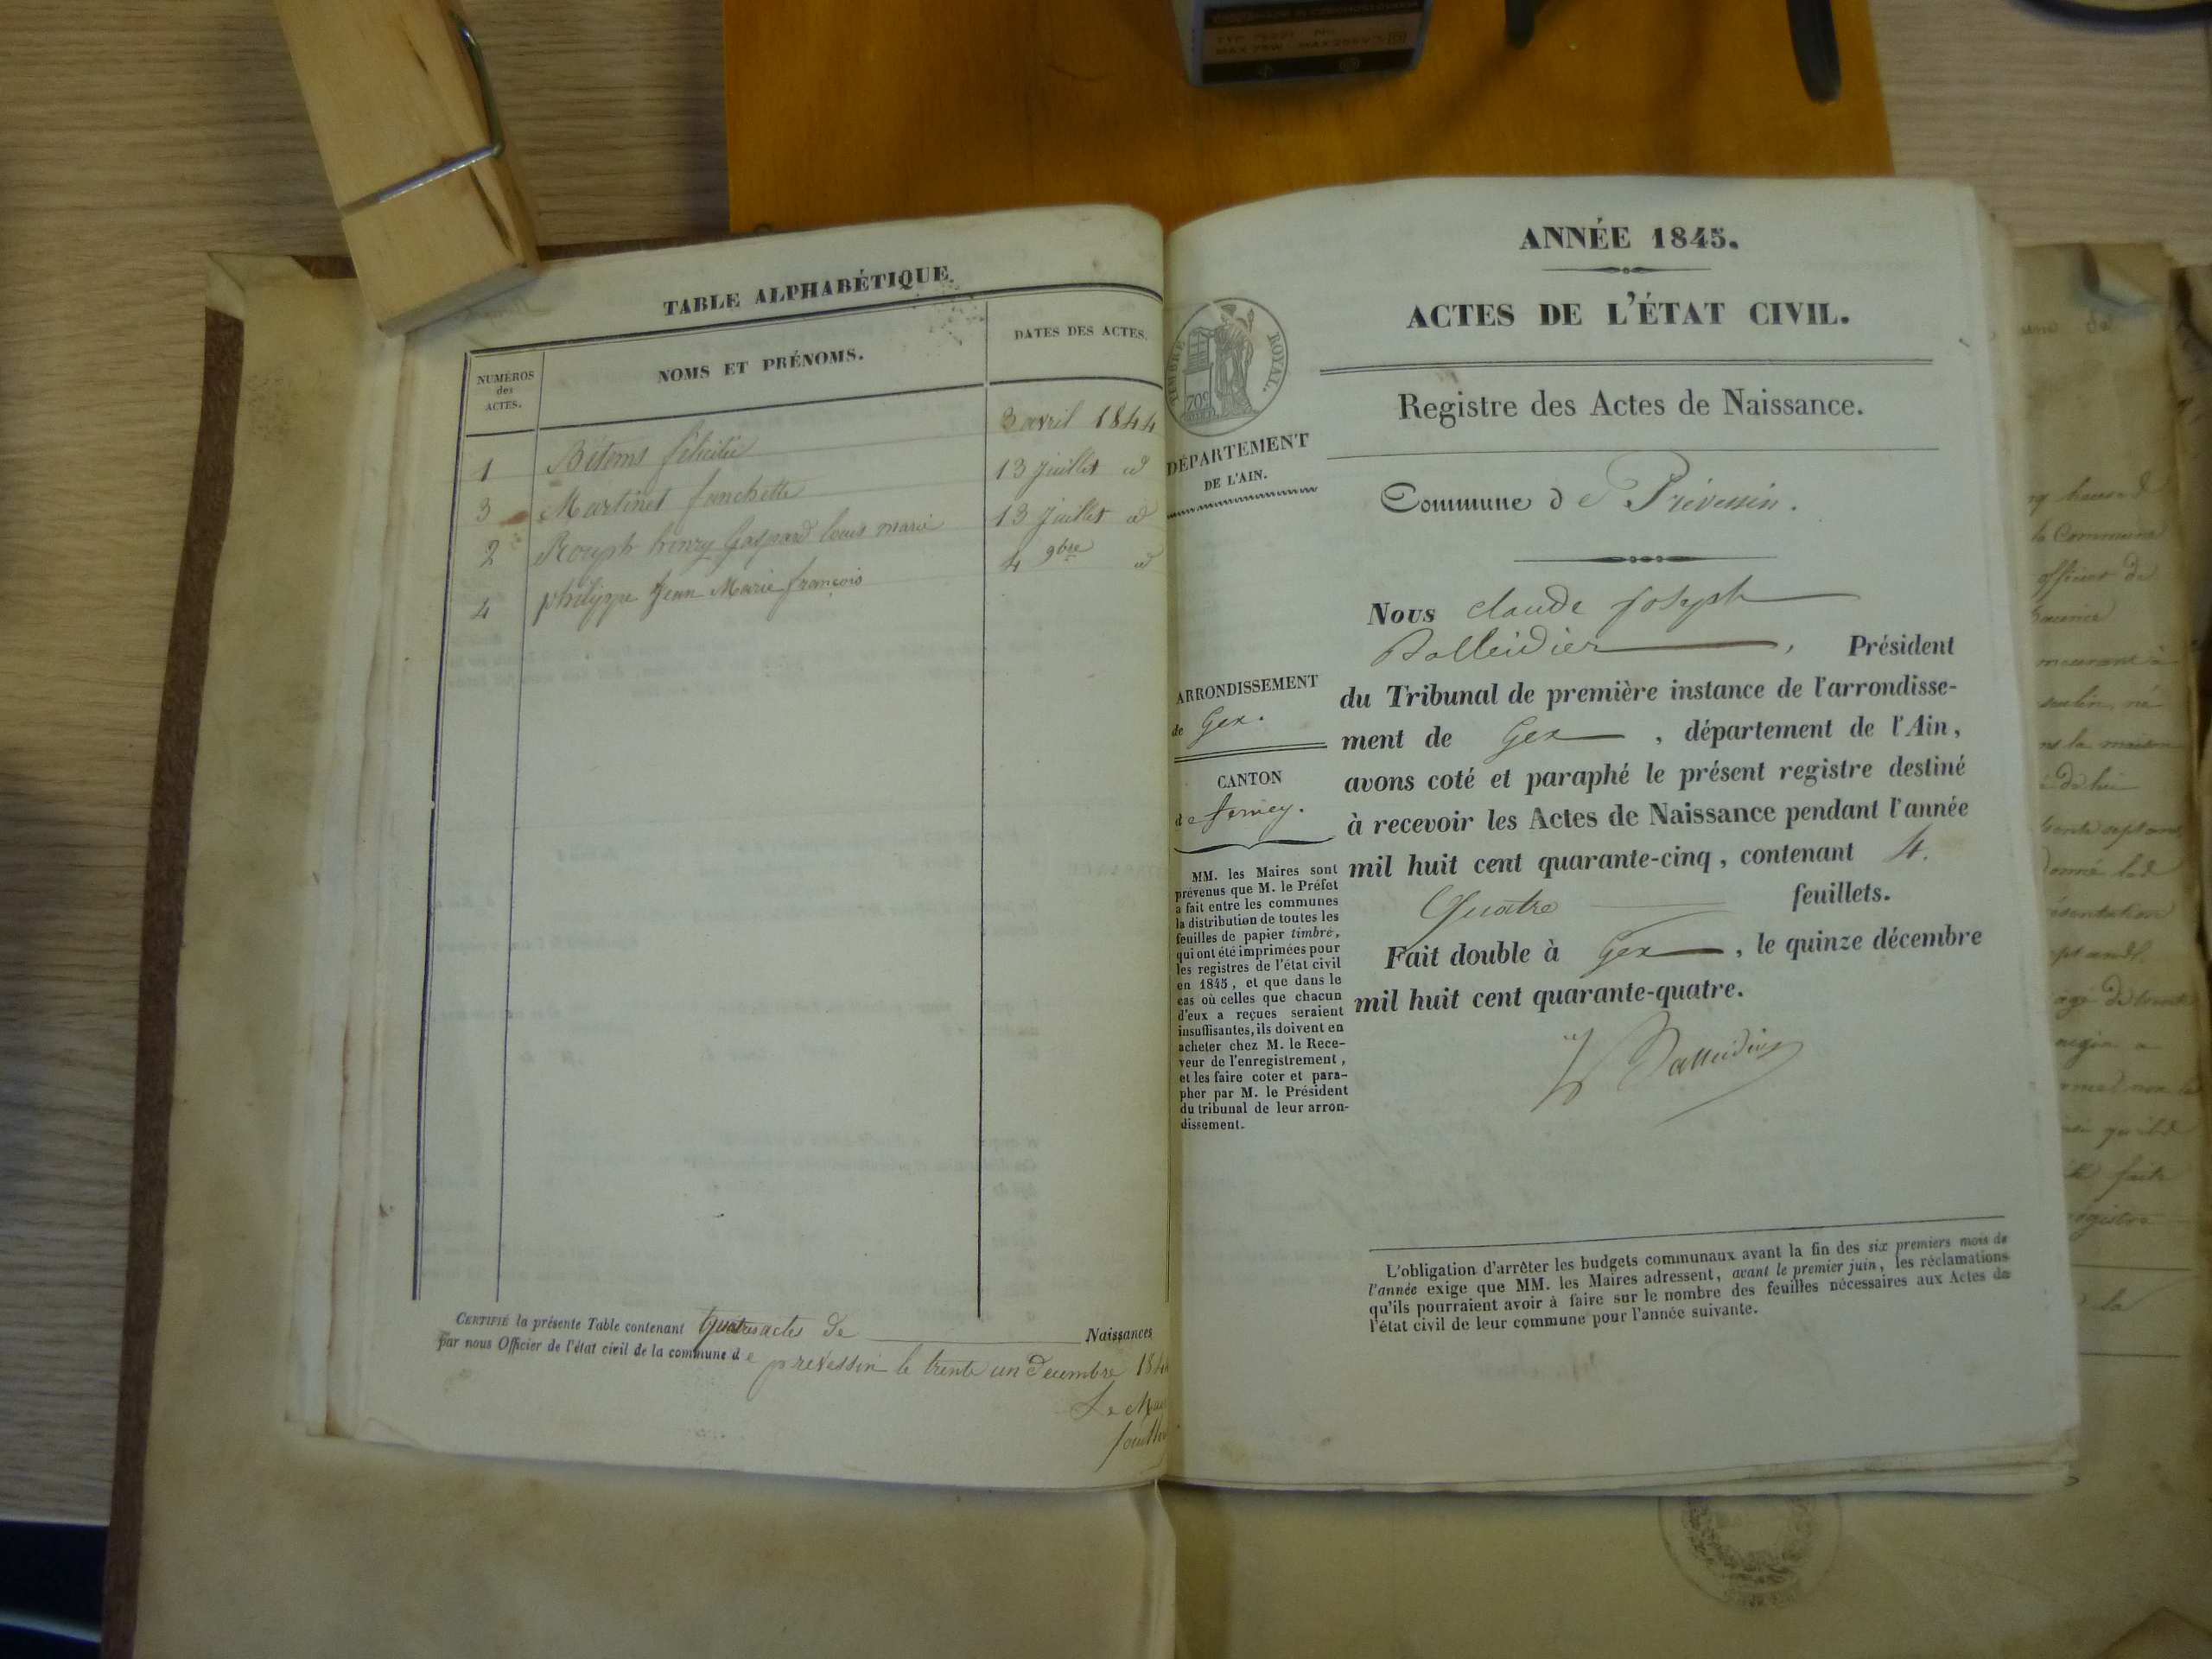 TABLE ALPHABÉTIQUE.
NUMÉROS
des
ACTES.
NOMS ET PRÉNOMS.
DATES DES ACTES.
1 félicité 3 avril 1844
3 Martinet fanchette 13 Juillet id
2 henry Gaspard louis marie 13 Juillet id
4 philippe Jean Marie françois 4 9bre id
CERTIFIÉ la présente Table contenant quatre actes de Naissances
par nous Officier de l'état civil de la commune de prevessin le trente un decembre 1844
Le Maire
ANNÉE 1845.
ACTES DE L'ÉTAT CIVIL.
Registre des Actes de Naissance.
Commune de Prévessin.
TIMBRE ROYAL.
70c
DÉPARTEMENT
DE L'AIN.
ARRONDISSEMENT
de Gex.
CANTON
de ferney.
MM. les Maires sont
prévenus que M. le Préfet
a fait entre les communes
la distribution de toutes les
feuilles de papier timbré,
qui ont été imprimées pour
les registres de l'état civil
en 1845, et que dans le
cas où celles que chacun
d'eux a reçues seraient
insuffisantes, ils doivent en
acheter chez M. le Rece-
veur de l'enregistrement,
et les faire coter et para-
pher par M. le Président
du tribunal de leur arron-
dissement.
Nous claude joseph
Balleidier, Président
du Tribunal de première instance de l'arrondisse-
ment de Gex, département de l'Ain,
avons coté et paraphé le présent registre destiné
à recevoir les Actes de Naissance pendant l'année
mil huit cent quarante-cinq, contenant 4.
Quatre feuillets.
Fait double à Gex, le quinze décembre
mil huit cent quarante-quatre.
Balleidier
L'obligation d'arrêter les budgets communaux avant la fin des six premiers mois de
l'année exige que MM. les Maires adressent, avant le premier juin, les réclamations
qu'ils pourraient avoir à faire sur le nombre des feuilles nécessaires aux Actes de
l'état civil de leur commune pour l'année suivante.